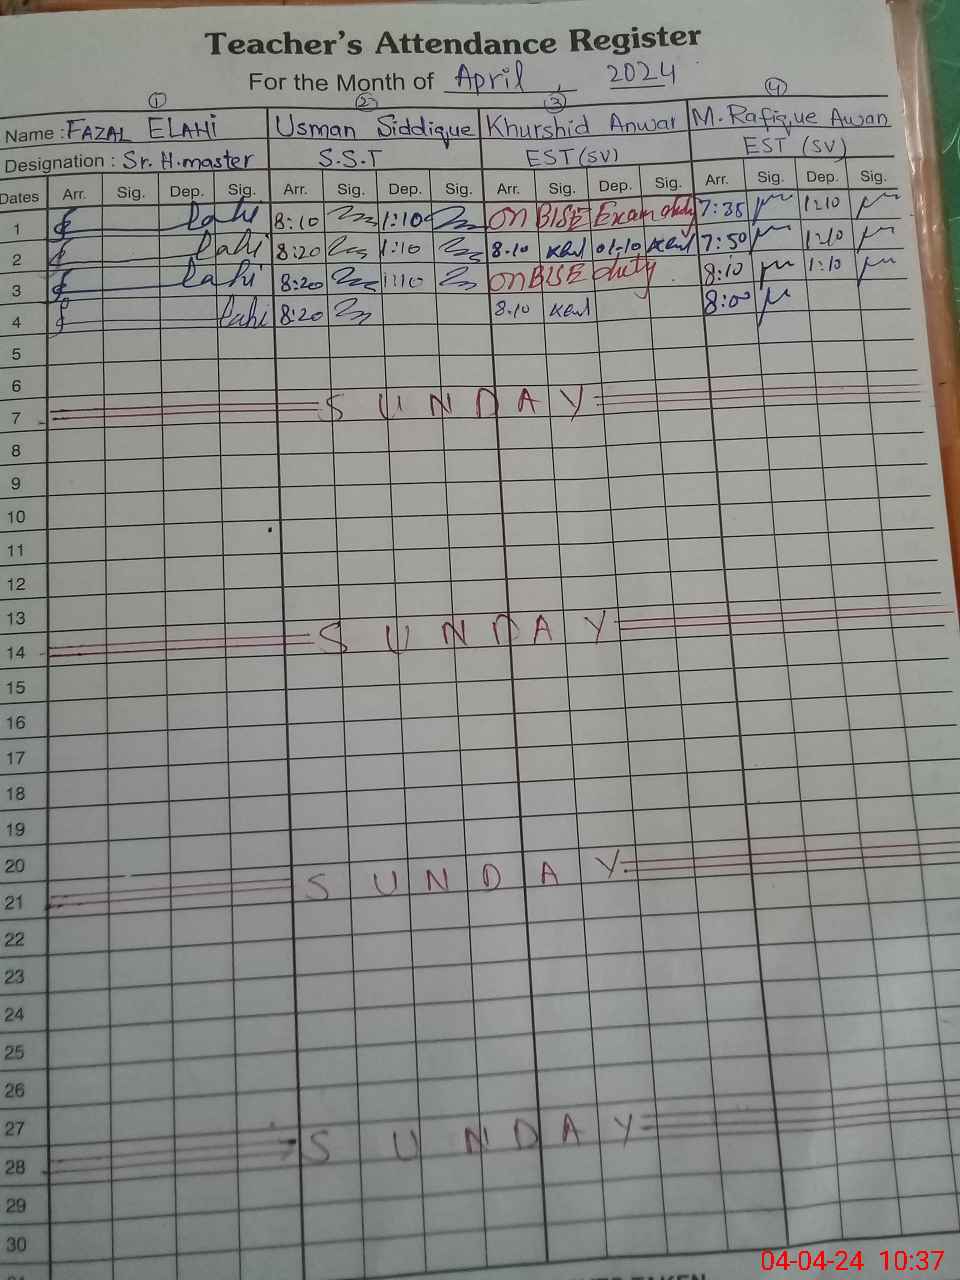 Teacher's Attendance Register
For the Month of April, 2024
① ② ③ ④
Name : FAZAL ELAHI Usman Siddique Khurshid Anwar M. Rafique Awan
Designation : Sr. H.master S.S.T EST (SV) EST (SV)
Dates Arr. Sig. Dep. Sig. Arr. Sig. Dep. Sig. Arr. Sig. Dep. Sig. Arr. Sig. Dep. Sig.
1 Elahi 8:10 1:10 On BISE Exam duty 7:35 1:10
2 Elahi 8:20 1:10 8.10 01.10 7:50 1:10
3 Elahi 8:20 1:10 on BISE duty. 8:10 1:10
4 Elahi 8:20 8.10 8:00
5
6
7 SUNDAY
8
9
10
11
12
13
14 SUNDAY
15
16
17
18
19
20
21 SUNDAY
22
23
24
25
26
27
28 SUNDAY
29
30
04-04-24 10:37